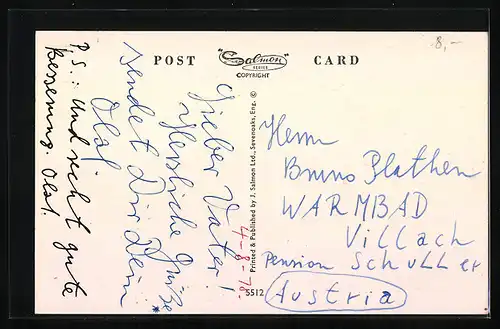 8,-
POST "Salmon" CARD
SERIES
COPYRIGHT
Lieber Vater!
Herzliche Grüße
sendet Dir Dein
Olaf
P.S.: Und recht gute
Besserung. Olaf.
4-8-70
Printed & Published by J. Salmon Ltd., Sevenoaks, Eng. ©
5512
Herrn
Bruno Plathen
WARMBAD
Villach
Pension Schuller
Austria